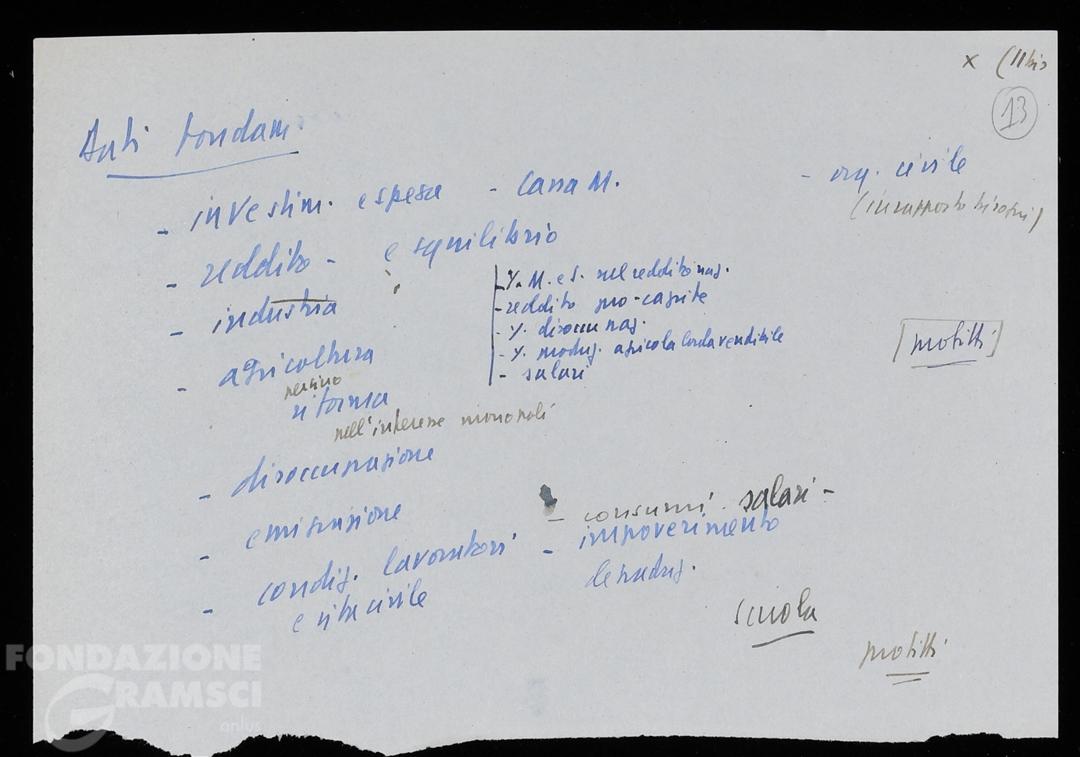 x (11bis
13
Dati fondam.
- investim. e spesa - Cassa M.
- org. civile
(in rapporto bisogni)
- reddito - e squilibrio
- industria
- % M. e I. nel reddito naz.
- reddito pro-capite
- % disoccupaz.
- % produz. agricola lorda vendibile
- salari
[profitti]
- agricoltura
persino
riforma
nell'interesse monopoli
- disoccupazione
- emigrazione
- consumi salari -
- condiz. lavoratori - impoverimento
e vita civile
scuola
profitti
FONDAZIONE
GRAMSCI
onlus